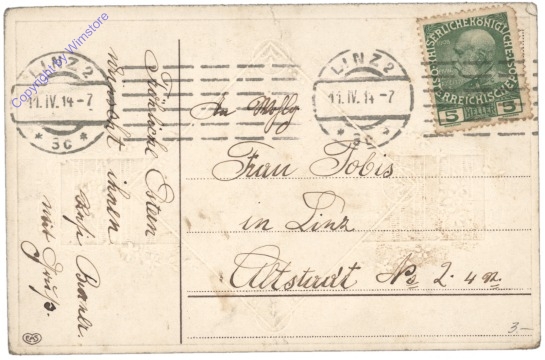 Copyright by Wimstore
LINZ 2
11. IV. 14 - 7
* 3c *
LINZ 2
11. IV. 14 - 7
* 3c *
KAISERLICHE KÖNIGLICHE
ÖSTERREICHISCHE
5 HELLER 5
Fröhliche Ostern
wünscht ihnen
mit Gruß.
An
Frau Tobis
in Linz
Altstadt No 2. 4
EAS
3-